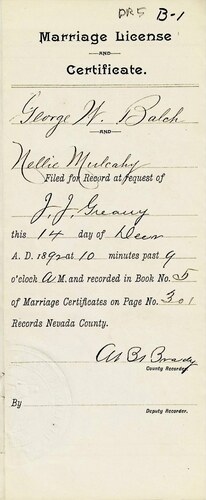 DR5 B-1
Marriage License
AND
Certificate.
George W. Balch
AND
Nellie Mulcahy
Filed for Record at request of
J. J. Greany
this 14 day of Decr
A. D. 1892 at 10 minutes past 9
o'clock A M. and recorded in Book No. 5
of Marriage Certificates on Page No. 301
Records Nevada County.
Brady
County Recorder.
By
Deputy Recorder.